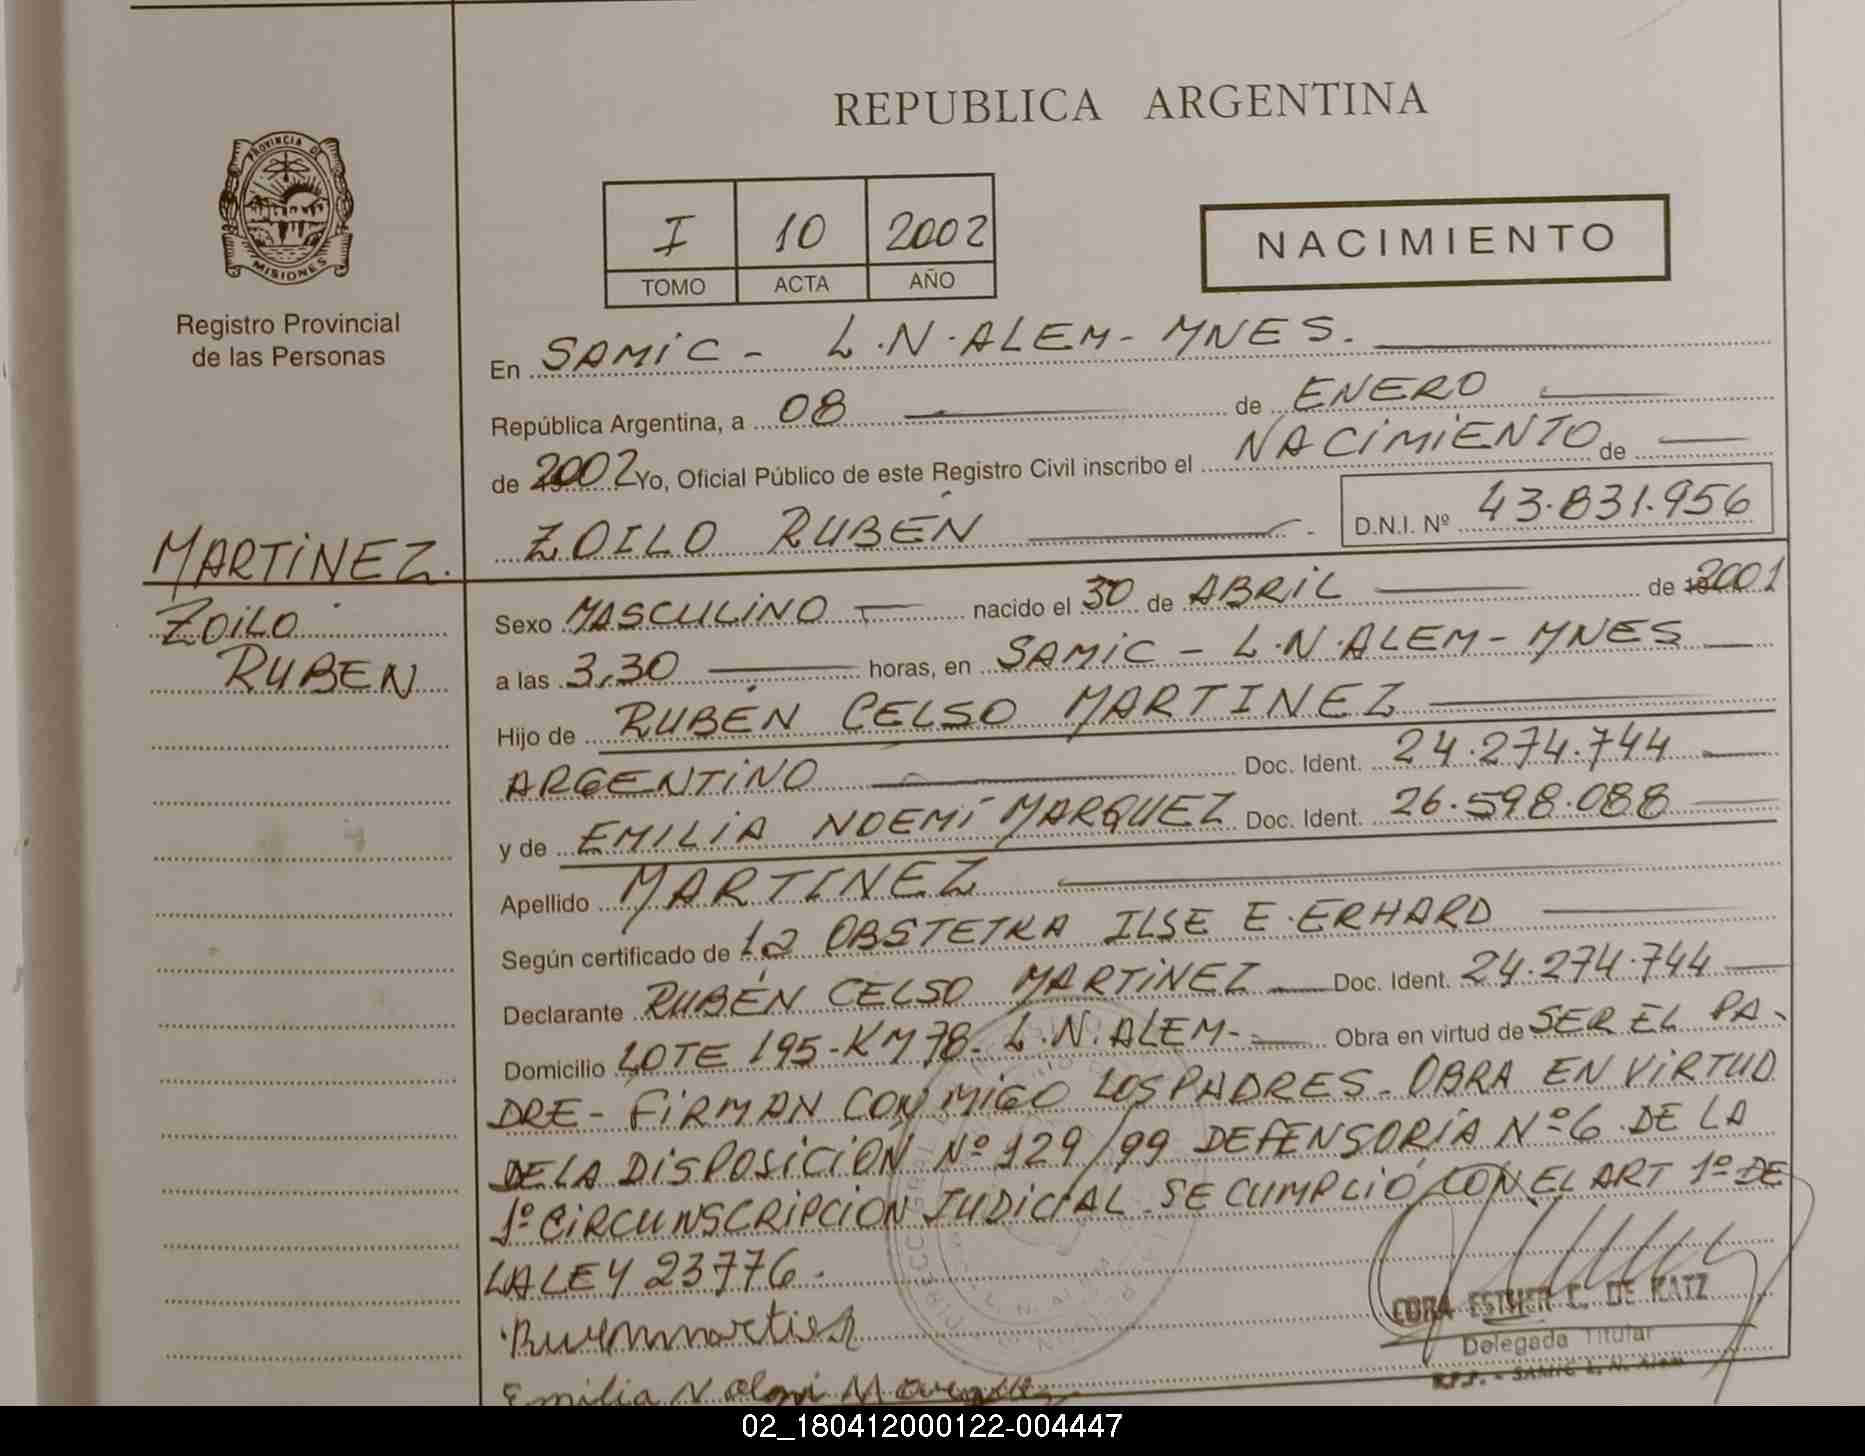 REPUBLICA ARGENTINA
PROVINCIA DE
MISIONES
Registro Provincial
de las Personas
I 10 2002
TOMO ACTA AÑO
NACIMIENTO
En SAMIC - L.N. ALEM - MNES.
República Argentina, a 08 de ENERO
de 2002 Yo, Oficial Público de este Registro Civil inscribo el NACIMIENTO de
ZOILO RUBÉN
D.N.I. Nº 43.831.956
MARTINEZ.
ZOILO
RUBEN
Sexo MASCULINO nacido el 30 de ABRIL de 2001
a las 3,30 horas, en SAMIC - L.N. ALEM - MNES
Hijo de RUBÉN CELSO MARTINEZ
ARGENTINO Doc. Ident. 24.274.744
y de EMILIA NOEMÍ MARQUEZ Doc. Ident. 26.598.088
Apellido MARTINEZ
Según certificado de La OBSTETRA ILSE E. ERHARD
Declarante RUBÉN CELSO MARTINEZ Doc. Ident. 24.274.744
Domicilio LOTE 195 - KM 78 - L.N. ALEM - Obra en virtud de SER EL PA-
DRE - FIRMAN CONMIGO LOS PADRES - OBRA EN VIRTUD
DE LA DISPOSICIÓN Nº 129/99 DEFENSORÍA Nº 6 DE LA
1º CIRCUNSCRIPCION JUDICIAL. SE CUMPLIÓ CON EL ART 1º DE
LA LEY 23776.
CORA ESTHER C. DE KATZ
Delegada Titular
Emilia N
02_180412000122-004447